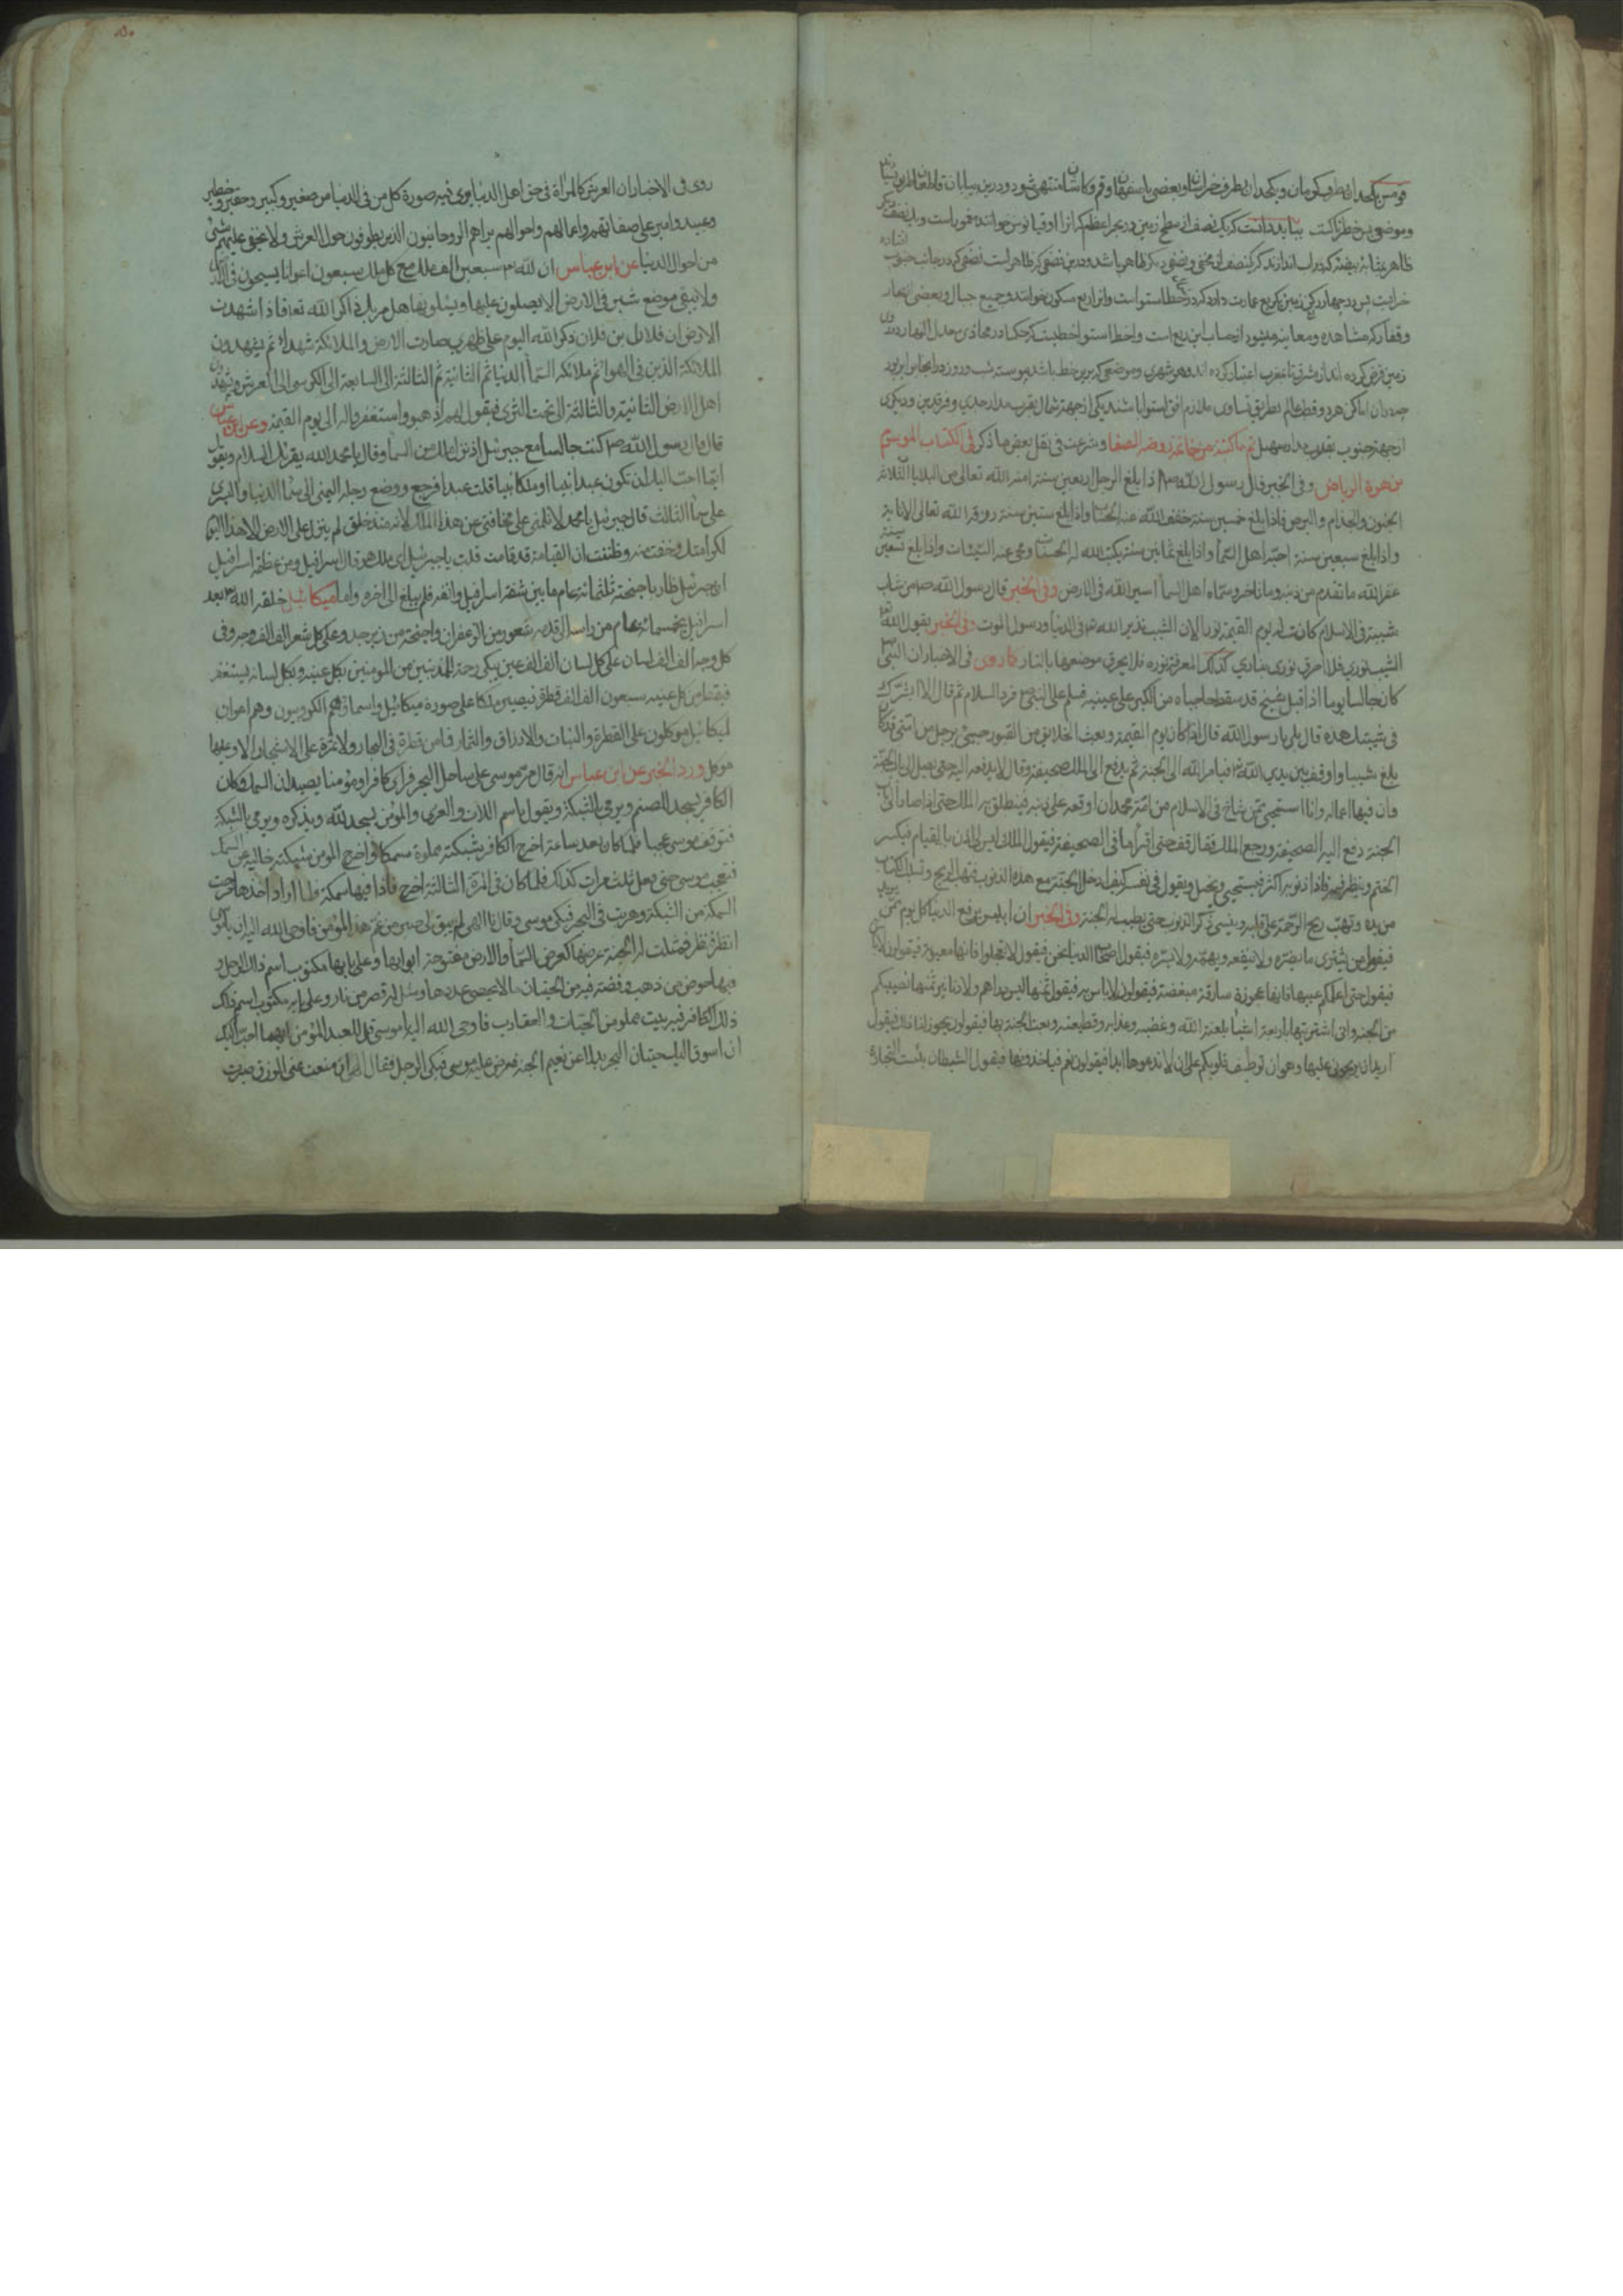 قومس و یکحد ان بطرف کرمان و یکحد ان بطرف خراسان و بعضی باصفهان و قم و کاشان منتهی شود و درین بیابان قاطعان طریق
و موضعی پس خطرناکست بباید دانست که یک نصف از سطح زمین در بحر اعظم که انرا اوقیانوس خوانند مغمور است و یک نصف دیگر
ظاهر بمثابه بیضه که در اب اندازند که یک نصف ان مخفی و نصفی دیگر ظاهر باشد و درین نصفی که ظاهر است نصفی که در جانب جنوب افتاده
خرابست پس در چهار یک زمین که ربع عمارت دارد که در خط استواست وانرا ربع مسکون خوانند و جمیع جبال و بعضی بحار
و قفار که مشاهده و معاینه میشود از حساب این ربع است و خط استوا خطیست که حکما در محاذی معدل النهار
زمین فرض کرده اند از مشرق تا مغرب اعتبار کرده اند و هر شهری و موضعی که برین خط باشد پیوسته شب و روز در انجا برابر بود
در ان اماکن هر دو قطب عالم بطریق تساوی ملازم افق استوا باشند یکی از جهة شمال بقرب مدار جدی و فرقدین و دیگری
از جهة جنوب بقلاب مدار سهیل تم ما کتبته من خاتمة روضة الصفا و شرعت فی نقل بعض ما ذکر فی الکتاب الموسوم
بزهرة الریاض وفی الخبر قال رسول الله اذا بلغ الرجل اربعین سنة امنه الله تعالی من البلایا الثلاثة
الجنون والجذام والبرص فاذا بلغ خمسین سنة خفف الله عنه الحساب واذا بلغ ستین سنة رزقه الله تعالی الانابة
واذا بلغ سبعین سنة احبه اهل السماء واذا بلغ ثمانین سنة یکتب الله له الحسنات ومحی عنه السیئات واذا بلغ تسعین سنة
غفر الله ما تقدم من ذنبه وما تاخر وسماه اهل السماء اسیر الله فی الارض وفی الخبر قال رسول الله صم من شاب
شیبة فی الاسلام کانت له یوم القیمة نورا لان الشیب نذیر الله فی الدنیا ورسول الموت وفی الخبر یقول الله
الشیب نوری فلا احرق نوری بناری کذلک المعرفة نوره فلا یحرق موضعها بالنار کما روی فی الاخبار ان النبی
کان جالسا یوما اذا قبل شیخ قد سقط حاجباه من الکبر علی عینیه فسلم علی النبی فرد السلام ثم قال الا ابشرک
فی شیبتک هذه قال بلی یا رسول الله قال اذا کان یوم القیمة وبعث الخلائق من القبور جیئ برجل من امتی قد کان
بلغ شیبا واوقف بین یدی الله فیامر الله الی الجنة ثم یدفع الی الملک صحیفة وقال لا یدفعه الیه حتی یصل الی باب الجنة
وان فیها اعماله وانا استحیی ممن شاخ فی الاسلام من امة محمد ان اوقعه علی ذنبه فینطلق به الملک حتی اذا صار الی باب
الجنة دفع الیه الصحیفة ورجع الملک فقال قف حتی اقرأ ما فی الصحیفة فیقول الملک لیس لی اذن بالقیام فیکسر
الختم وینظر فیه فاذا ذنوبه اکثر فیستحیی ویخجل ویقول فی نفسه کیف ادخل الجنة مع هذه الذنوب فتهب الریح وتسلب الکتاب
من یده وتهب ریح الرحمة علی قلبه وینسی ذکر الذنوب حتی یطیب له الجنة وفی الخبر ان ابلیس یرفع الدنیا کل یوم
فیقول من یشتری ما یضره ولا ینفعه ویهمه ولا یسره فیقول اصحاب الدنیا نحن فیقول لا تعجلوا فانها معیوبة فیقولون لا باس
فیقول حتی اعلمکم عیبها فانها عجوزة سارقة مبغضة فیقولون لا باس به فیقول ثمنها لیس بدراهم ولا دنانیر ثمنها نصیبکم
من الجنة وانی اشتریتها باربعة اشیاء بلعنة الله وغضبه وعذابه وقطیعته وبعت الجنة بها فیقولون یجوز لنا ذلک فیقول
ارید ان تربحونی علیها وهو ان توطنوا قلوبکم علی ان لا تدعوها ابدا فیقولون نعم فیاخذونها فیقول الشیطان بئست التجارة
روی فی الاخبار ان العرش کالمرآة فی حق اهل الدنیا یری فیه صورة کل من فی الدنیا من صغیر وکبیر وحقیر وخطیر
وعبید وامیر علی صفاتهم واعمالهم واحوالهم یراهم الروحانیون الذین یطوفون حول العرش ولا یخفی علیهم شیئ
من احوال الدنیا عن ابن عباس ان لله سبعین الف ملک مع کل ملک سبعون اعوانا یسیحون فی الارض
ولا یبقی موضع شبر فی الارض الا یصلون علیها ویسلونها هل مر بک ذاکر الله تعا فاذا شهدت
الارض ان فلان بن فلان ذکر الله الیوم علی ظهری صارت الارض والملائکة شهداء ثم یشهدون
الملائکة الذین فی الهواء ثم ملائکة السماء الدنیا ثم الثانیة ثم الثالثة الی السابعة الی الکرسی الی العرش ویشهدون
اهل الارض الثانیة والثالثة الی تحت الثری فیقول لهم اذهبوا واستغفروا له الی یوم القیمة وعن ابن عباس
قال قال رسول الله کنت جالسا مع جبرئیل اذ نزل ملک من السماء وقال یا محمد الله یقرئک السلام ویقول
ایما احب الیک ان تکون عبدا نبیا او ملکا نبیا قلت عبدا فرجع ووضع رجله الیمنی الی سماء الدنیا والیسری
علی سماء الثالث قال جبرئیل یا محمد لا تلمنی علی مخافتی عن هذا الملک لانه منذ خلق لم ینزل علی الارض الا هذا الیوم
لکرامتک وخفت منه وظننت ان القیامة قد قامت قلت یا جبرئیل ای ملک هو قال اسرافیل ومن عظمة اسرافیل
ان جبرئیل طار باجنحته ثلثمائة عام ما بین شفة اسرافیل وانفه فلم یبلغ الی اخره واما میکائیل خلقه الله بعد
اسرافیل بخمسمائة عام من راسه الی قدمه شعور من الزعفران واجنحته من زبرجد وعلی کل شعر الف الف وجه وفی
کل وجه الف الف لسان علی کل لسان الف الف عین یبکی رحمة للمذنبین من المومنین بکل عینه وبکل لسانه یستغفر
فیقطر من کل عینیه سبعون الف الف قطرة فیصیر ملکا علی صورة میکائیل واسماؤهم الکروبیون وهم اعوان
لمیکائیل موکلون علی القطرة والنبات والارزاق والثمار فما من قطرة فی البحار ولا ثمرة علی الاشجار الا وعلیها
موکل ورد الخبر عن ابن عباس انه قال مر موسی علی ساحل البحر فرای کافرا ومؤمنا یصیدان السمک وکان
الکافر یسجد الصنم ویرمی بالشبکة ویقول باسم اللات والعزی والمؤمن یسجد لله ویذکره ویرمی بالشبکة
فتوقف موسی عجبا فلما کان بعد ساعة اخرج الکافر شبکته مملوة سمکا واخرج المومن شبکته خالیة عن السمک
فتعجب موسی حتی فعل ثلث مرات کذلک فلما کان فی المرة الثالثة اخرج فاذا فیها سمکة فلما اراد اخذها فرت
السمکة من الشبکة وهربت فی البحر فبکی موسی وقال یا الهی لم یبق لی صبر من غم هذا المؤمن فاوحی الله الیه ان یا موسی
انظر فنظر فمثلت له الجنة عرضها کعرض السماء والارض مفتوحة ابوابها وعلی بابها مکتوب اسم ذلک الرجل و
فیها حوض من ذهب وفضة فیه من الحیتان ما لا یحصی عددها ومثل له قصر من نار وعلی بابه مکتوب اسم ذلک
ذلک الکافر فیه بیت مملو من الحیات والعقارب فاوحی الله الیه یا موسی قل للعبد المؤمن ایهما احب الیک
ان اسوق الیک حیتان البحر بدلا عن نعیم الجنة فعرض علیه موسی فبکی الرجل فقال الهی ان منعت عنی الرزق صبرت